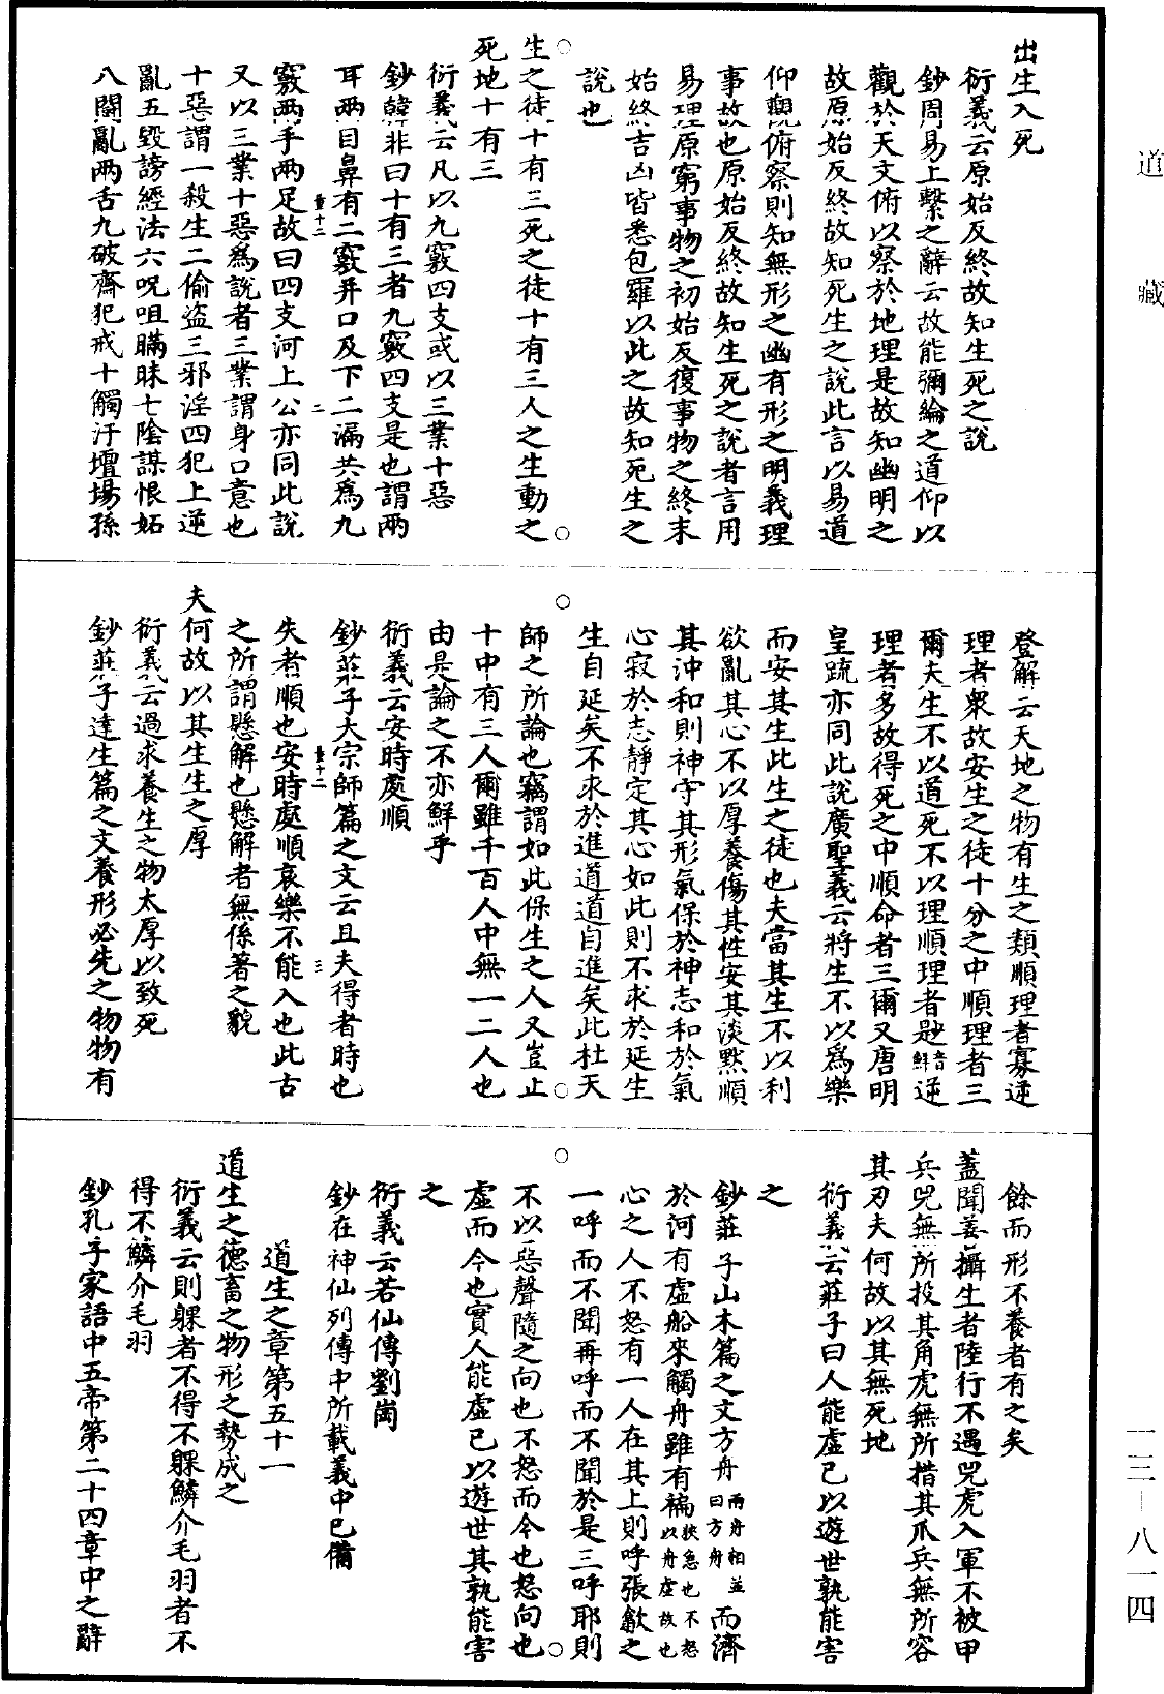 道藏
出生入死
衍義云原始反終故知生死之說
鈔周易上繫之辭云故能彌綸之道仰以
觀於天文俯以察於地理是故知幽明之
故原始反終故知死生之說此言以易道
仰觀俯察則知無形之幽有形之明義理
事故也原始反終故知生死之說者言用
易理原窮事物之初始反復事物之終末
始終吉凶皆悉包羅以此之故知死生之
說也
生之徒十有三死之徒十有三人之生動之
死地十有三
衍義云凡以九竅四支或以三業十惡
鈔韓非曰十有三者九竅四支是也謂兩
耳兩目鼻有二竅并口及下二漏共為九
竅兩手兩足故曰四支河上公亦同此說
又以三業十惡為說者三業謂身口意也
十惡謂一殺生二偷盜三邪淫四犯上逆
亂五毀謗經法六呪咀瞞昧七陰謀恨妬
八鬪亂兩舌九破齋犯戒十觸汙壇場孫
登解云天地之物有生之類順理者寡逆
理者衆故安生之徒十分之中順理者三
爾夫生不以道死不以理順理者尠音鮮逆
理者多故得死之中順命者三爾又唐明
皇疏亦同此說廣聖義云將生不以為樂
而安其生此生之徒也夫當其生不以利
欲亂其心不以厚養傷其性安其淡默順
其沖和則神守其形氣保於神志和於氣
心寂於志靜定其心如此則不求於延生
生自延矣不求於進道道自進矣此杜天
師之所論也竊謂如此保生之人又豈止
十中有三人爾雖千百人中無一二人也
由是論之不亦鮮乎
衍義云安時處順
鈔莊子大宗師篇之文云且夫得者時也
失者順也安時處順哀樂不能入也此古
之所謂懸解也懸解者無係著之貌
夫何故以其生生之厚
衍義云過求養生之物太厚以致死
鈔莊子達生篇之文養形必先之物物有
餘而形不養者有之矣
蓋聞善攝生者陸行不遇兕虎入軍不被甲
兵兕無所投其角虎無所措其爪兵無所容
其刃夫何故以其無死地
衍義云莊子曰人能虛己以遊世孰能害
之
鈔莊子山木篇之文方舟兩舟相並曰方舟而濟
於河有虛船來觸舟雖有褊狹急也不怒以舟虛故也
心之人不怒有一人在其上則呼張歙之
一呼而不聞再呼而不聞於是三呼耶則
不以惡聲隨之向也不怒而今也怒向也
虛而今也實人能虛己以遊世其孰能害
之
衍義云若仙傳劉崗
鈔在神仙列傳中所載義中已備
道生之章第五十一
道生之德畜之物形之勢成之
衍義云則躶者不得不躶鱗介毛羽者不
得不鱗介毛羽
鈔孔子家語中五帝第二十四章中之辭
一三－八一四